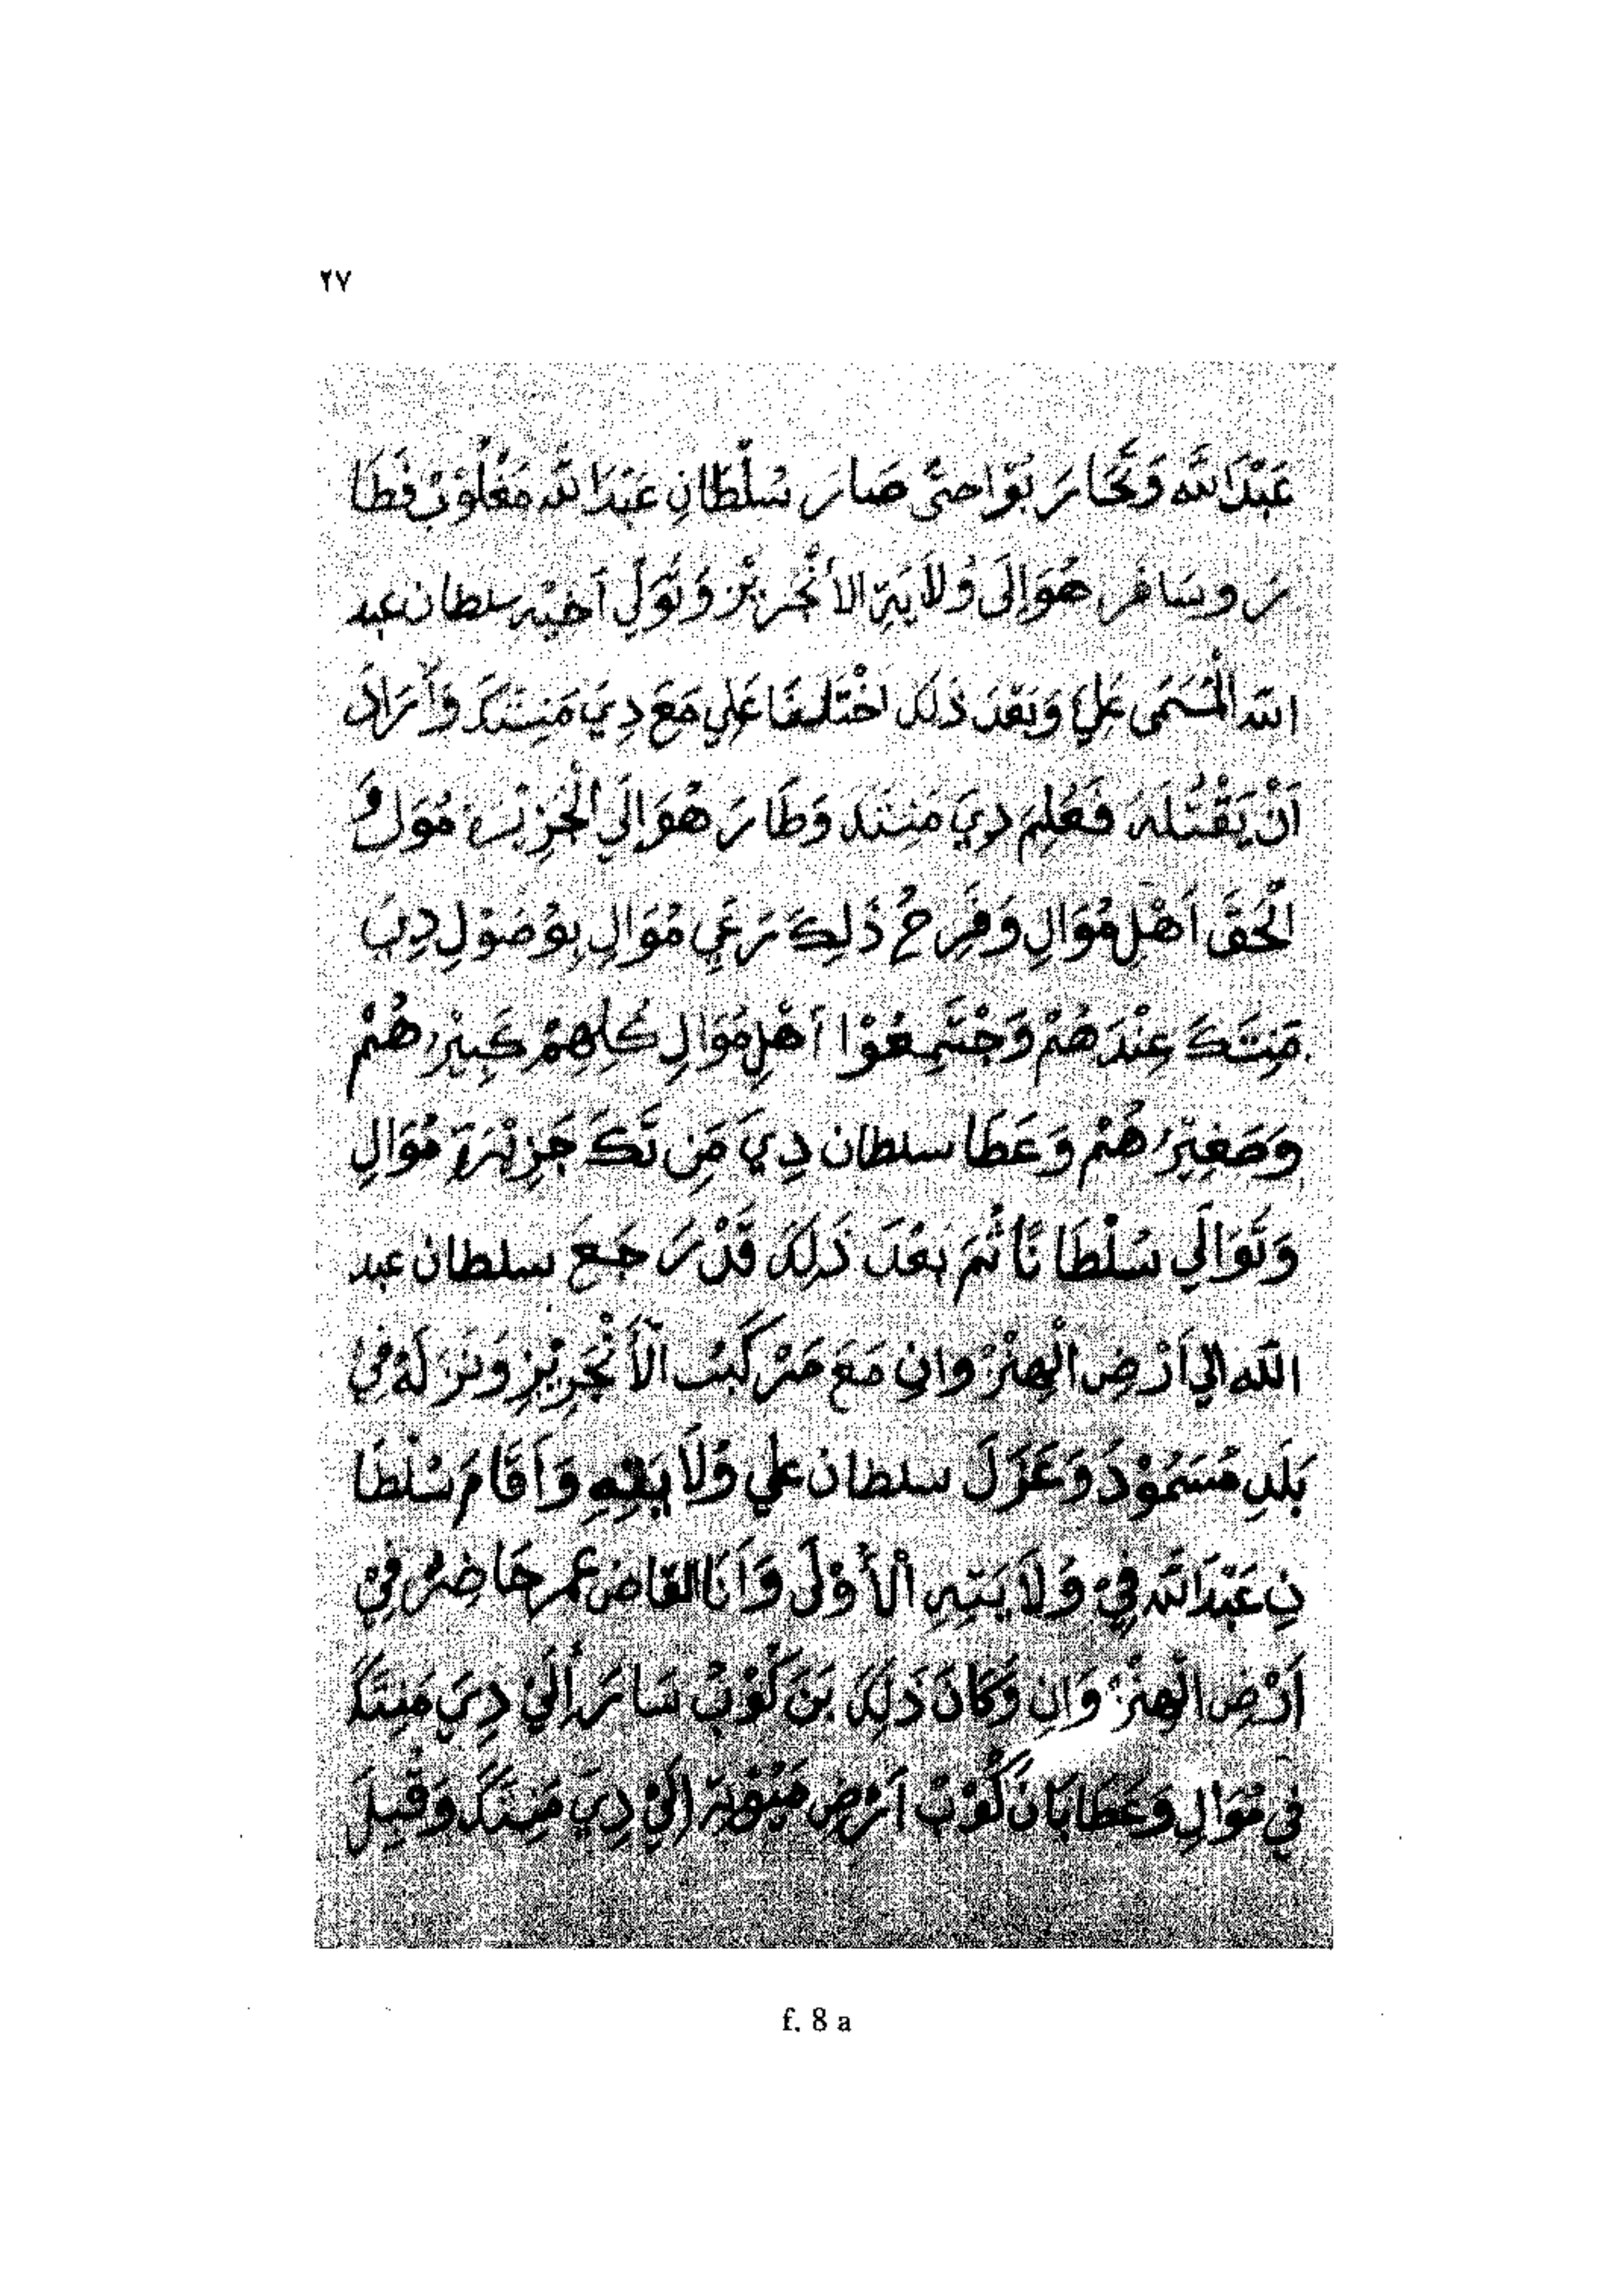 ٢٧
عَبْدَ اللَّه وَتَّحَارَبَوّا حتَّى صَارَ سُلْطَانِ عَبْدَ اللَّه مَغْلُوْبْ فَطَا
رَ وسَافَر هُوَ إِلَى وُلَايَةِ الأَنْجَرِيْز وَتَّوَلِّ أَخِيْهِ سلطان عبد
اللّه الْمُسَمَى عَلِيَّ وَبَعْدَ ذَلِكَ اخْتَلَفَا عَلِي مَعَ دِيَ مَنِتَكَ وَأَرَادَ
أَنْ يَقْتُلَهُ فَعُلِمَ دِيَ مَنِتَكَ وَطَارَ هُوَ إِلَي الْجَزِيْرَة مُوَلِ وَ
الْحَقَ أَهْلِ مُوَالِ وَفَرِحُ ذَلِكَ رَعِي مُوَالِ بِوُصُوْلِ دِيَ
مَنِتَكَ عِنْدَهُمْ وَجْتَمِعُوْا أَهْلِ مُوَالِ كُلِهِمْ كَبِيْرُهُمْ
وَصَغِيْرُهُمْ وَعَطَا سلطان دِيَ مَنِ تَكَ جَزِيْرَة مُوَالِ
وَتَّوَالَي سُلْطَانًا ثُمَ بَعْدَ ذَلِكَ قَدْ رَجَعَ سلطان عبد
اللّه الي اَرْضِ الْهِنْزُوانِ مَعَ مَرْكَبُ الْأَنْجَرِيْزِ وَنَزَلَهُ فِيْ
بَلَدِ مُسَمُوْدُ وَعَزَلَ سلطان علي وُلَايَتِهِ وَأَقَامَ سُلْطَا
نِ عَبْدَ اللَّه فِيْ وُلَايَتِهِ الْأَوْلَى وَأَنَا القاضى عمر حَاضِرُ فِيْ
اَرْضِ الْهِنْزُوَانِ وَكَانَ ذَلِكَ بَنَكُوْبُ سَارَ إِلَيْ دِيَ مَنِتَكَ
فِي مُوَالِ وَعَطَا بَانَكُوْبُ اَرْضِ مَيُوْتَة إِلَيْ دِيَ مَنِتَكَ وَقِيْلَ
f. 8 a